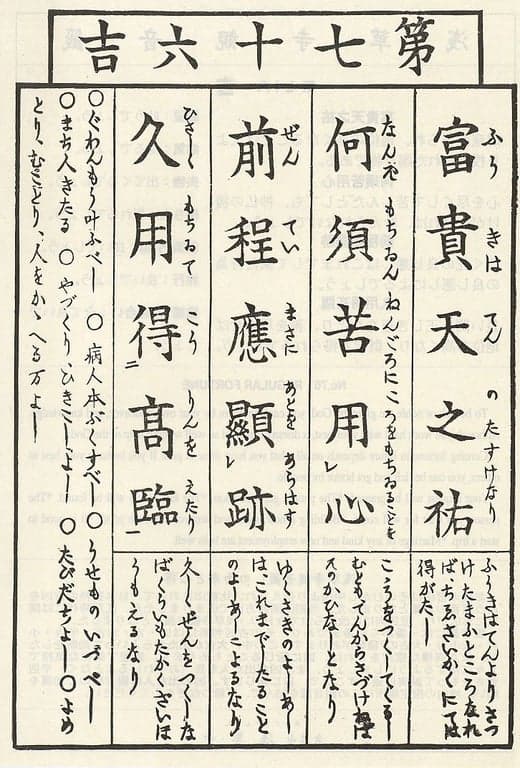 第七十六吉
富貴天之祐
ふうきは てんの たすけなり
ふうきはてんよりさづ
けたまふところなれ
ば、ちゑさいかくにては
得がたし
何須苦用レ心
なんぞ もちゐん ねんごろにこゝろをもちゐることを
こゝろをつくしてくるし
むともてんからさづけねば
そのかひなしとなり
前程應顯レ跡
ぜん てい まさに あとを あらはす
ゆくさきのよしあし
はこれまでしたること
のよしあしによるなり
久用得二髙臨一
ひさしく もちゐて こうりんを えたり
久しくぜんをつくしな
ばくらいもたかきさいほ
うもえるなり
○ぐわんもう叶ふべし ○病人本ぶくすべし ○うせものいづべし
○まち人きたる ○やづくり、ひきこしよし ○たびだちよし ○よめ
とり、むことり、人をかゝへる万よし